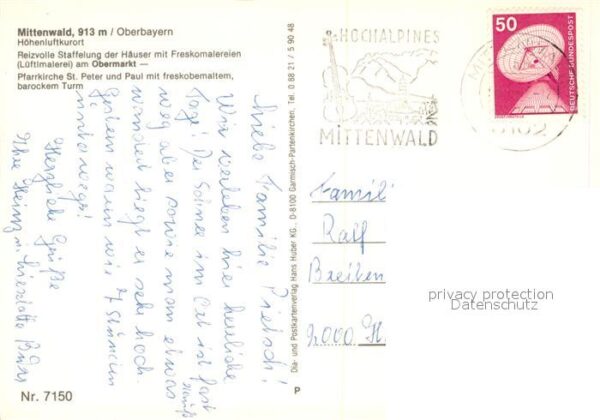 Mittenwald, 913 m / Oberbayern
Höhenluftkurort
Reizvolle Staffelung der Häuser mit Freskomalereien
(Lüftlmalerei) am Obermarkt —
Pfarrkirche St. Peter und Paul mit freskobemaltem,
barockem Turm
Liebe Familie Pietsch!
Wir verleben hier herrliche
Tage! Der Schnee im Ort ist fast
weg aber sowie man etwas
wandert liegt er sehr hoch.
Gestern waren wir 7 Stunden
unterwegs!
Herzliche Grüße
Ihre Heinz u. Liselotte
Nr. 7150
Dia- und Postkartenverlag Hans Huber KG., D-8100 Garmisch-Partenkirchen, Tel. 0 88 21 / 5 90 48
P
HOCHALPINES
MITTENWALD
50
DEUTSCHE BUNDESPOST
8102
Famili
Ralf
Breiten
2000 H
privacy protection
Datenschutz